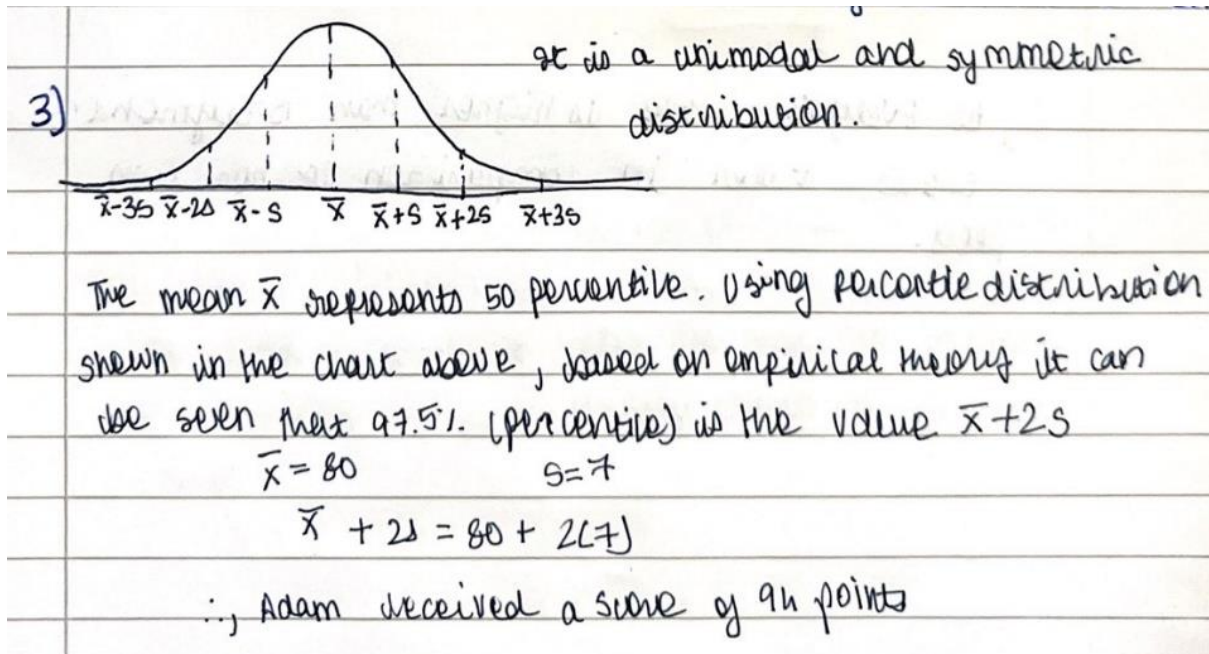 It is a unimodal and symmetric
3) distribution.
x̄-3s x̄-2s x̄-s x̄ x̄+s x̄+2s x̄+3s
The mean x̄ represents 50 percentile. Using percentile distribution
shown in the chart above, based on empirical theory it can
be seen that 97.5% (percentile) is the value x̄+2s
x̄ = 80 s=7
x̄ + 2s = 80 + 2(7)
∴, Adam received a score of 94 points